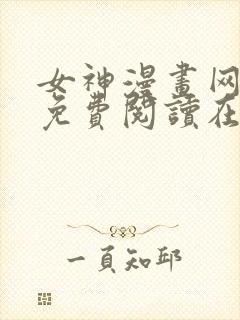 女神漫畫网
免費閱讀在
一頁知邱